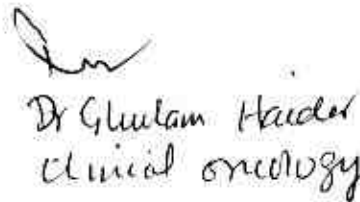 Dr Ghulam Haider
clinical oncology